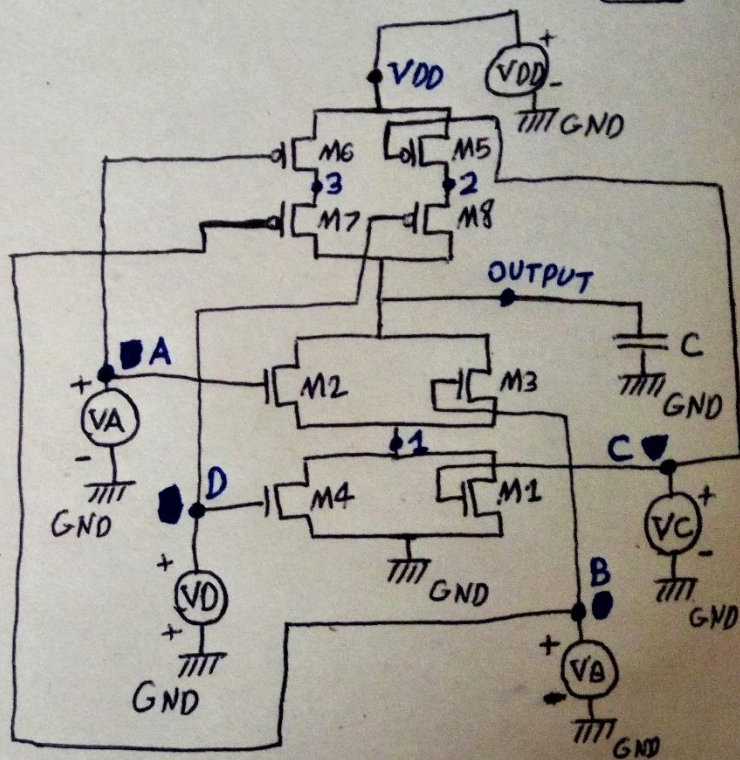 VDD
+
VDD
-
GND
M6
M5
3
2
M7
M8
OUTPUT
C
GND
A
+
VA
-
GND
M2
M3
1
C
D
M4
M1
+
VC
-
GND
GND
+
VD
+
GND
B
+
VB
-
GND